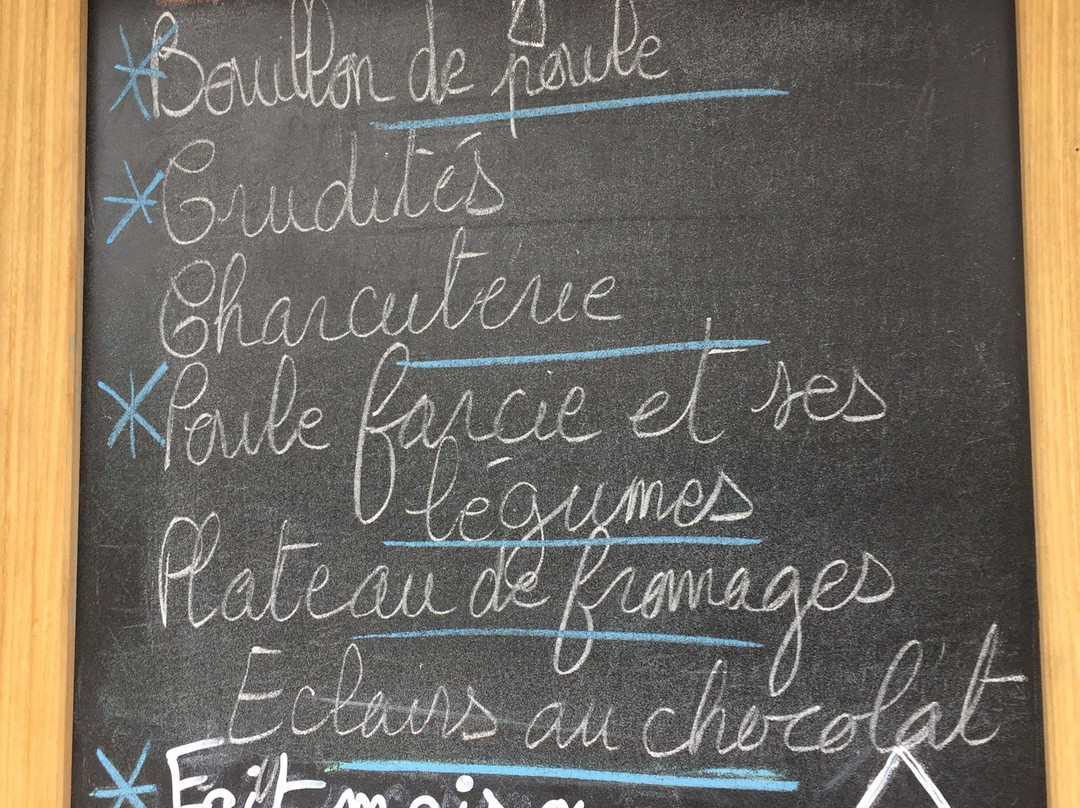 * Bouillon de poule
* Crudités
Charcuterie
* Poule farcie et ses
légumes
Plateau de fromages
Eclairs au chocolat
* Fait maison